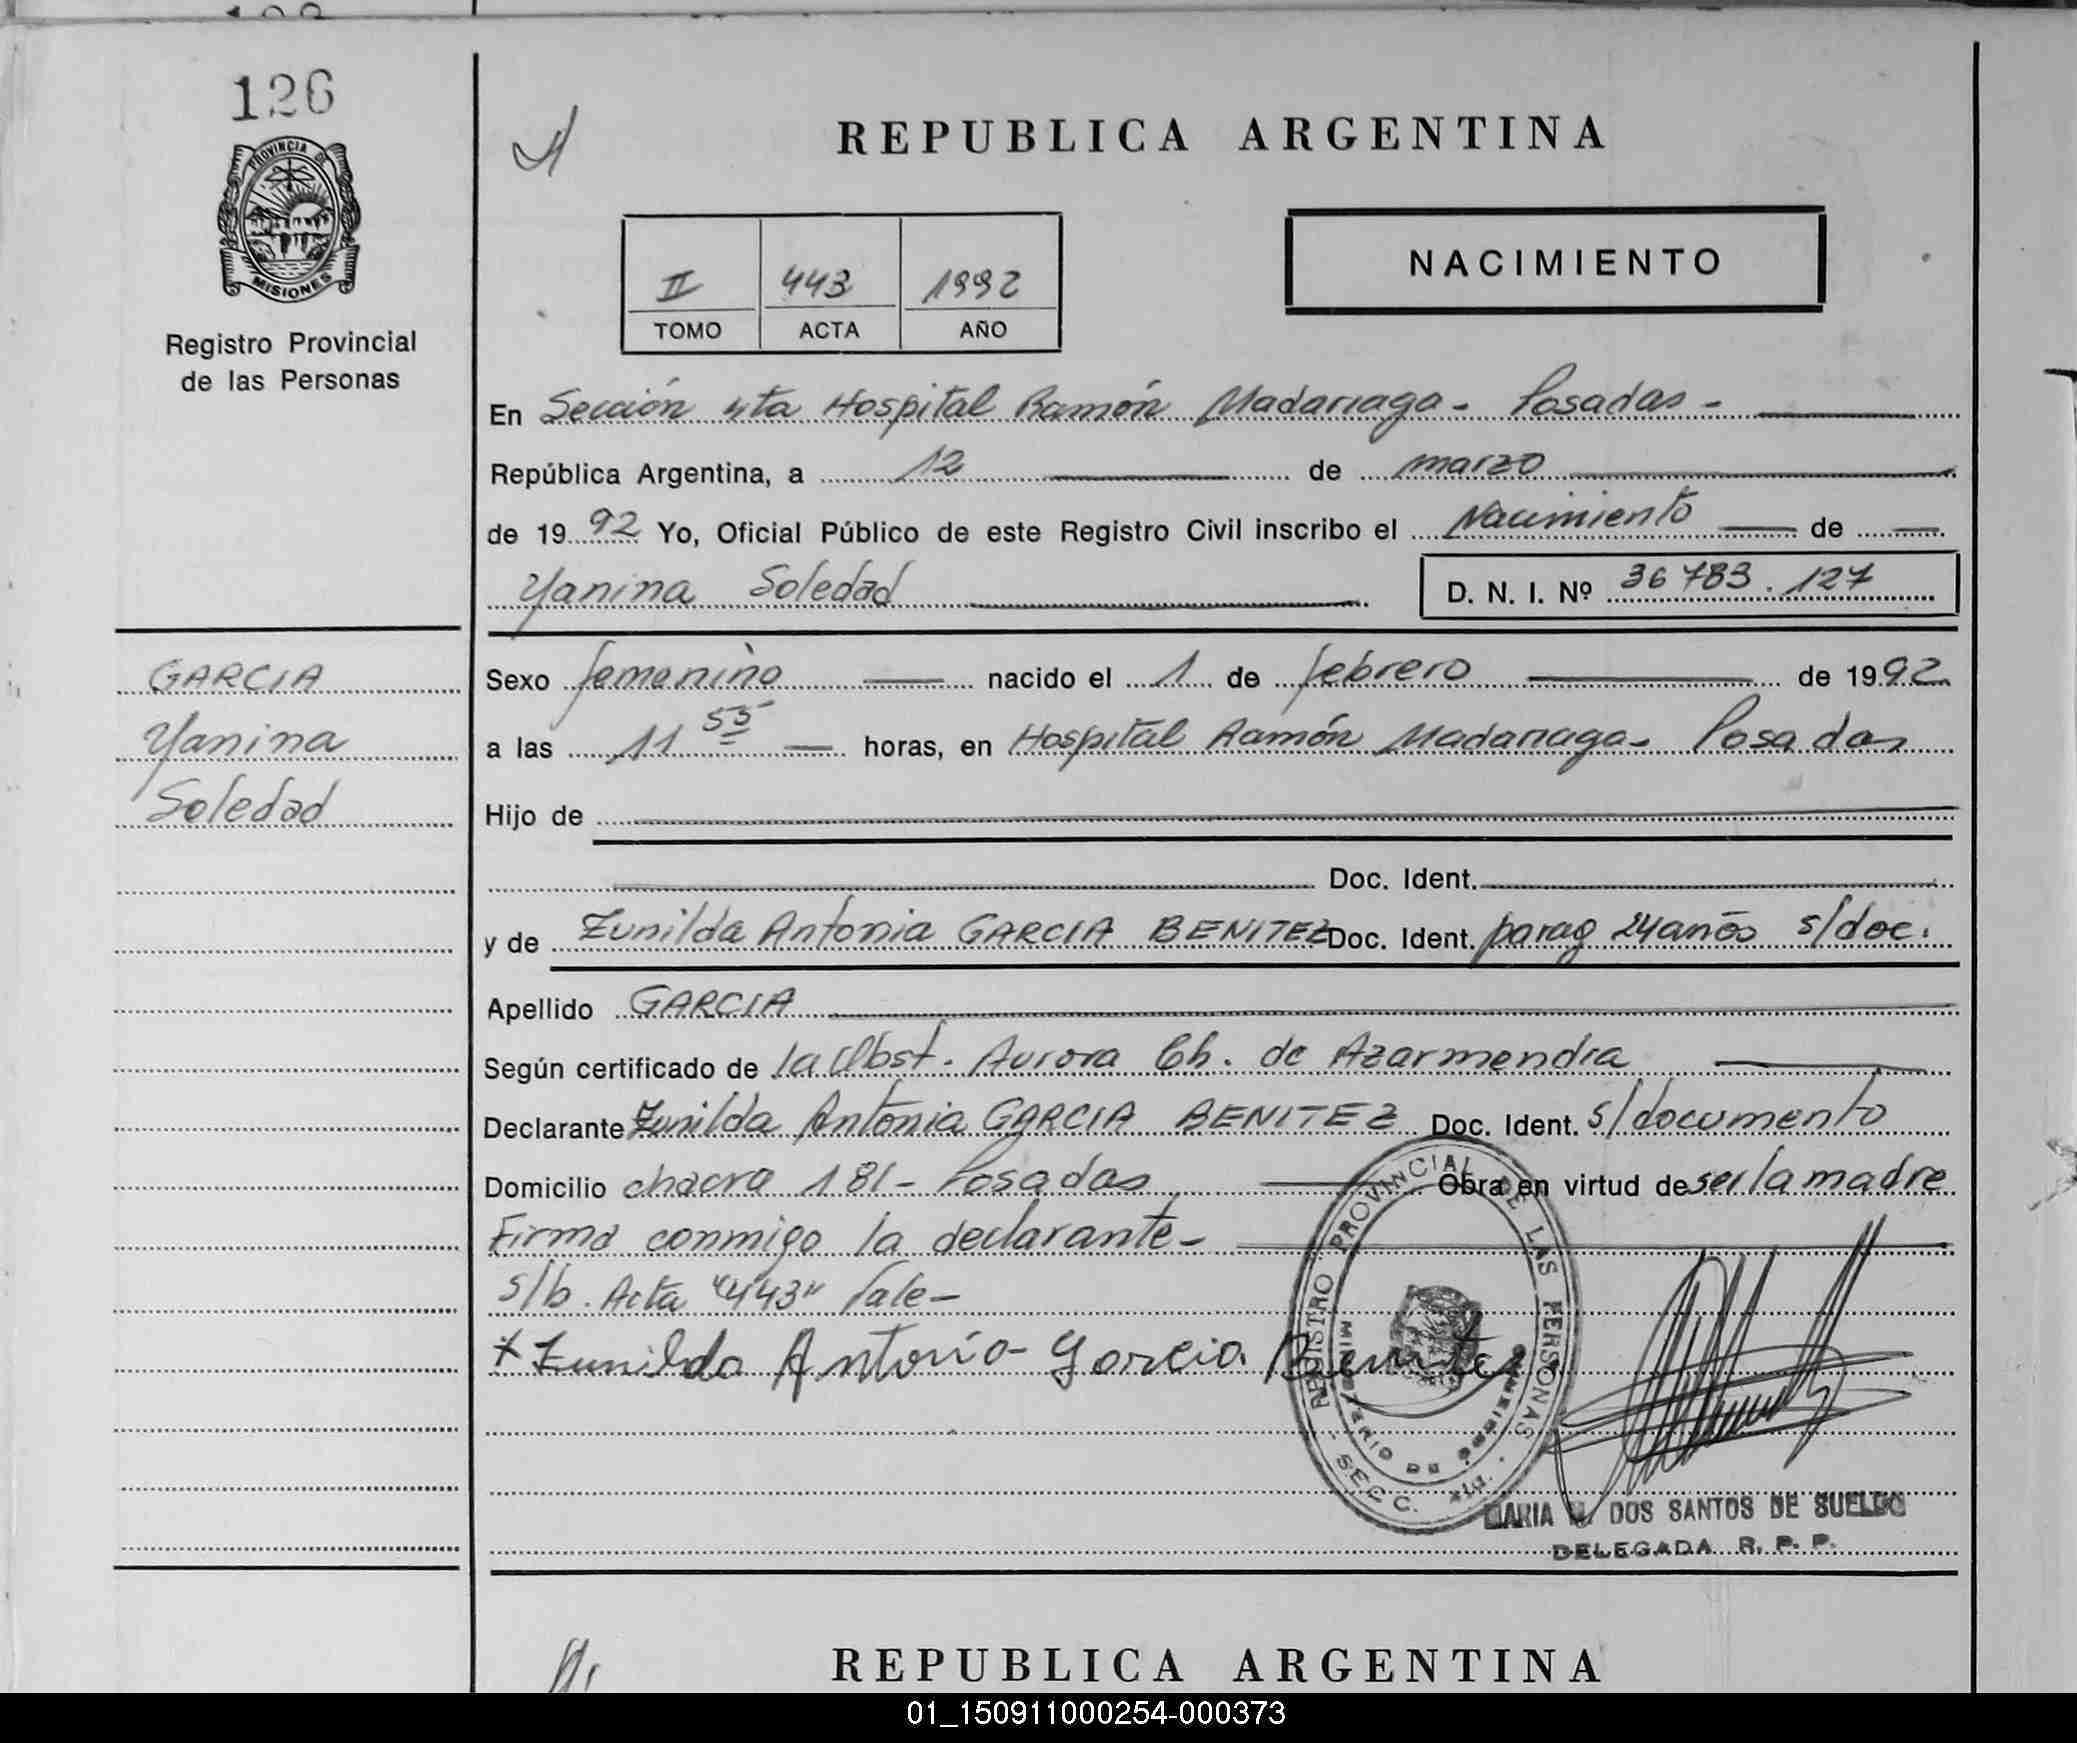 126
PROVINCIA DE
MISIONES
Registro Provincial
de las Personas
REPUBLICA ARGENTINA
II 443 1992
TOMO ACTA AÑO
NACIMIENTO
En Sección 4ta Hospital Ramón Madariaga - Posadas -
República Argentina, a 12 de marzo
de 1992 Yo, Oficial Público de este Registro Civil inscribo el Nacimiento de
Yanina Soledad D. N. I. Nº 36783.127
GARCIA
Yanina
Soledad
Sexo femenino nacido el 1 de febrero de 1992
a las 11 55 horas, en Hospital Ramón Madariaga - Posadas
Hijo de
Doc. Ident.
y de Zunilda Antonia GARCIA BENITEZ Doc. Ident. parag 24 años s/doc.
Apellido GARCIA
Según certificado de la Obst. Aurora Ch. de Azarmendia
Declarante Zunilda Antonia GARCIA BENITEZ Doc. Ident. s/documento
Domicilio chacra 181 - Posadas Obra en virtud de ser la madre
Firma conmigo la declarante -
s/b. Acta "443" Vale -
x Zunilda Antonia Garcia Benitez
REGISTRO PROVINCIAL DE LAS PERSONAS
MINISTERIO DE GOBIERNO
- SECC. 4ta. -
MARIA DOS SANTOS DE SUELDO
DELEGADA R. P. P.
REPUBLICA ARGENTINA
01_150911000254-000373